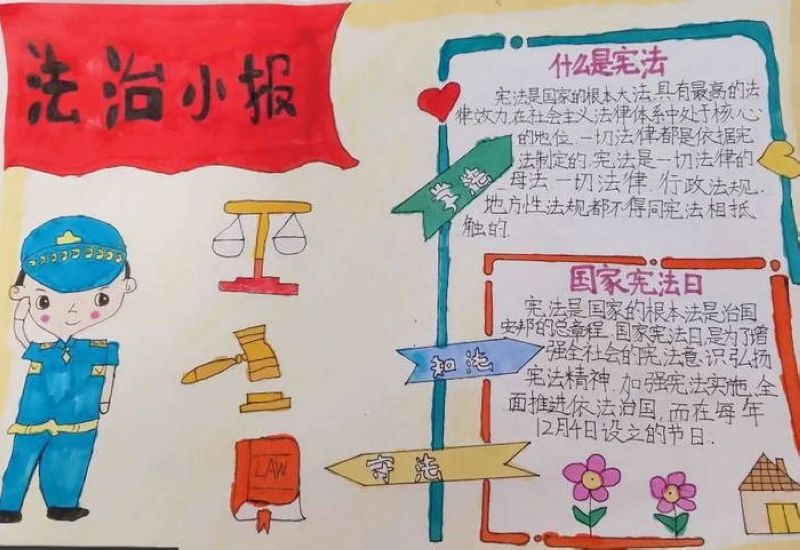 法治小报
什么是宪法
宪法是国家的根本大法,具有最高的法
律效力,在社会主义法律体系中处于核心
的地位.一切法律都是依据宪
法制定的.宪法是一切法律的
母法.一切法律.行政法规.
地方性法规都不得同宪法相抵
触的.
学法
国家宪法日
宪法是国家的根本法是治国
安邦的总章程.国家宪法日,是为了增
强全社会的宪法意识弘扬
宪法精神.加强宪法实施.全
面推进依法治国.而在每年
12月4日设立的节日.
知法
守法
LAW